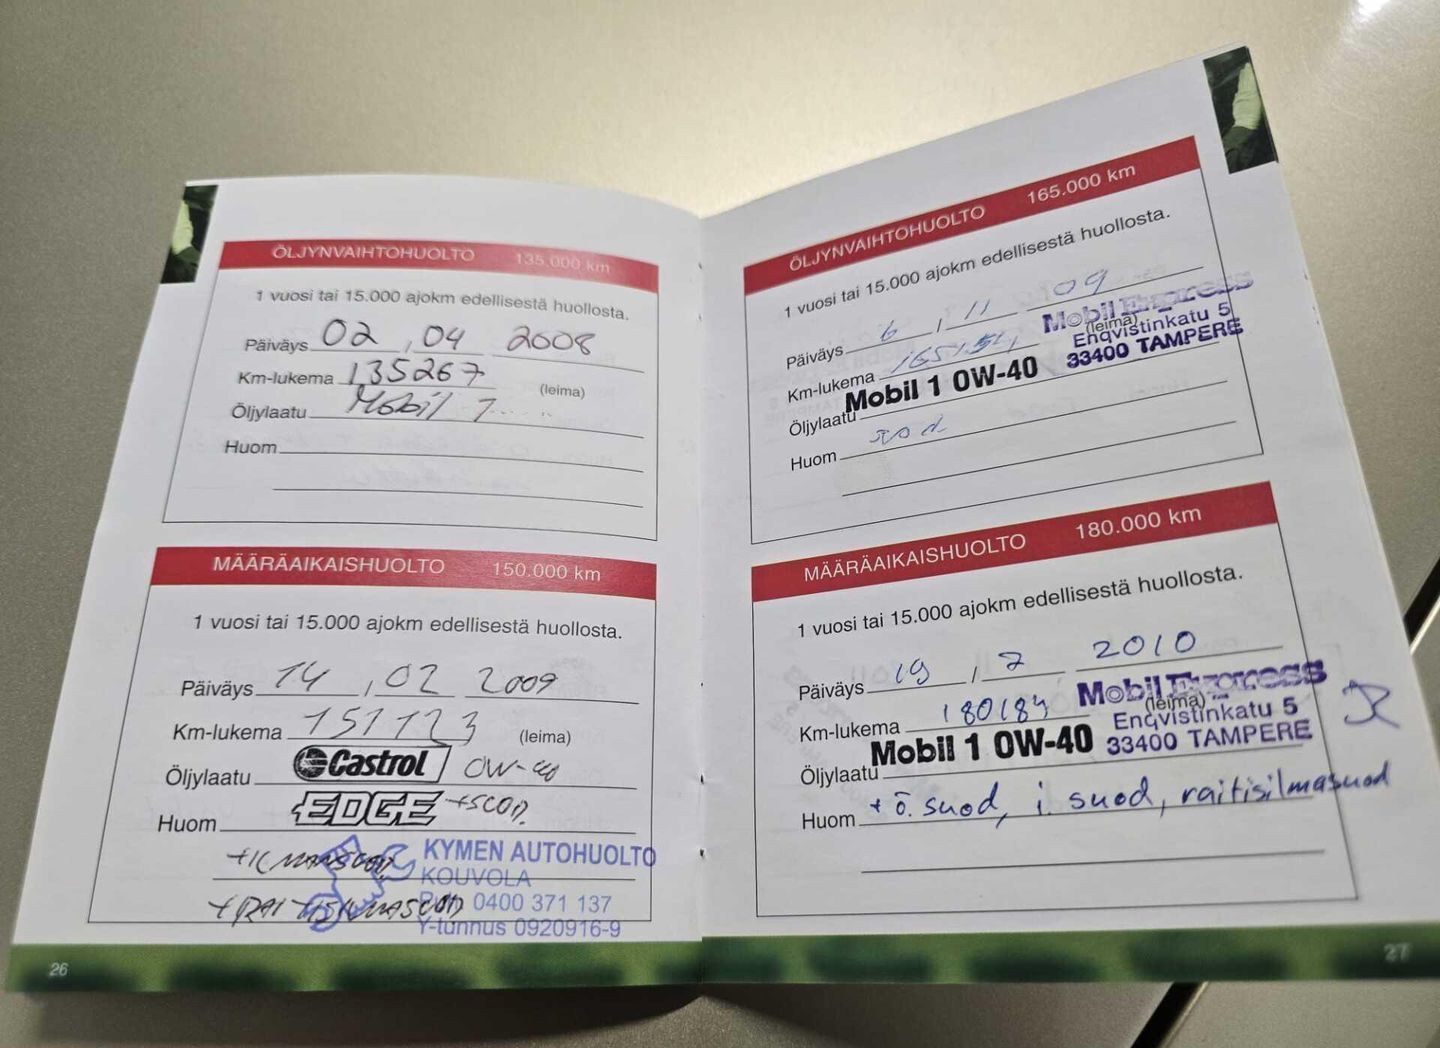 ÖLJYNVAIHTOHUOLTO 135.000 km
1 vuosi tai 15.000 ajokm edellisestä huollosta.
Päiväys 02 , 04 2008
Km-lukema 135267 (leima)
Öljylaatu Mobil 1
Huom
MÄÄRÄAIKAISHUOLTO 150.000 km
1 vuosi tai 15.000 ajokm edellisestä huollosta.
Päiväys 14 , 02 2009
Km-lukema 151123 (leima)
Öljylaatu Castrol 0W-40
Huom EDGE +SUOD.
+RAITISILMASUOD
KYMEN AUTOHUOLTO
KOUVOLA
Puh. 0400 371 137
Y-tunnus 0920916-9
26
ÖLJYNVAIHTOHUOLTO 165.000 km
1 vuosi tai 15.000 ajokm edellisestä huollosta.
Päiväys 6 , 11 09
Km-lukema (leima)
Mobil Express
Enqvistinkatu 5
33400 TAMPERE
Öljylaatu Mobil 1 0W-40
Huom
MÄÄRÄAIKAISHUOLTO 180.000 km
1 vuosi tai 15.000 ajokm edellisestä huollosta.
Päiväys 19 , 7 2010
Km-lukema 180184 (leima)
Mobil Express
Enqvistinkatu 5
33400 TAMPERE
Öljylaatu Mobil 1 0W-40
Huom + ö. suod, i. suod, raitisilmasuod
27